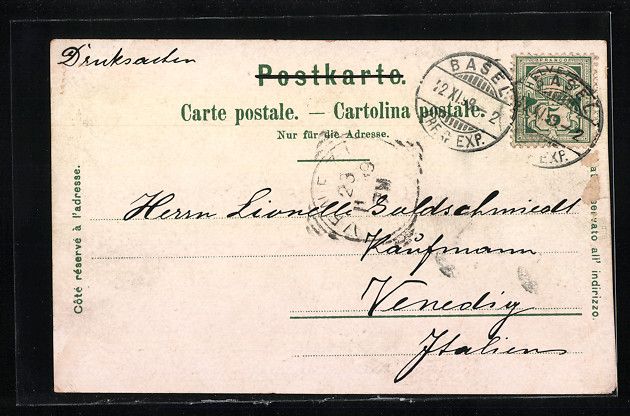 Drucksachen
Postkarte.
Carte postale. — Cartolina postale.
Nur für die Adresse.
BASEL
12.XI.98-2
BRF. EXP.
BASEL
EXP.
5
Côté réservé à l'adresse.
Herrn Lionello Goldschmiedt
Kaufmann
Venedig
Italien
servato all' indirizzo.